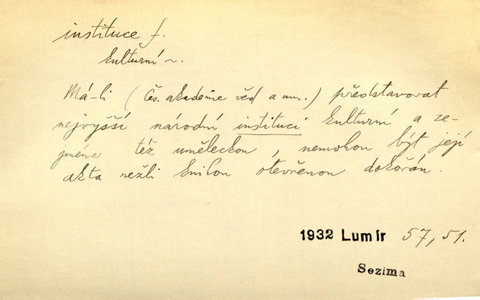 instituce f.
kulturní ~.
Má-li (Čes. akademie věd a um.) představovat
nejvyšší národní instituci kulturní a ze-
jména též uměleckou, nemohou být její
akta nežli knihou otevřenou dokořán.
1932 Lumír 57, 51.
Sezima